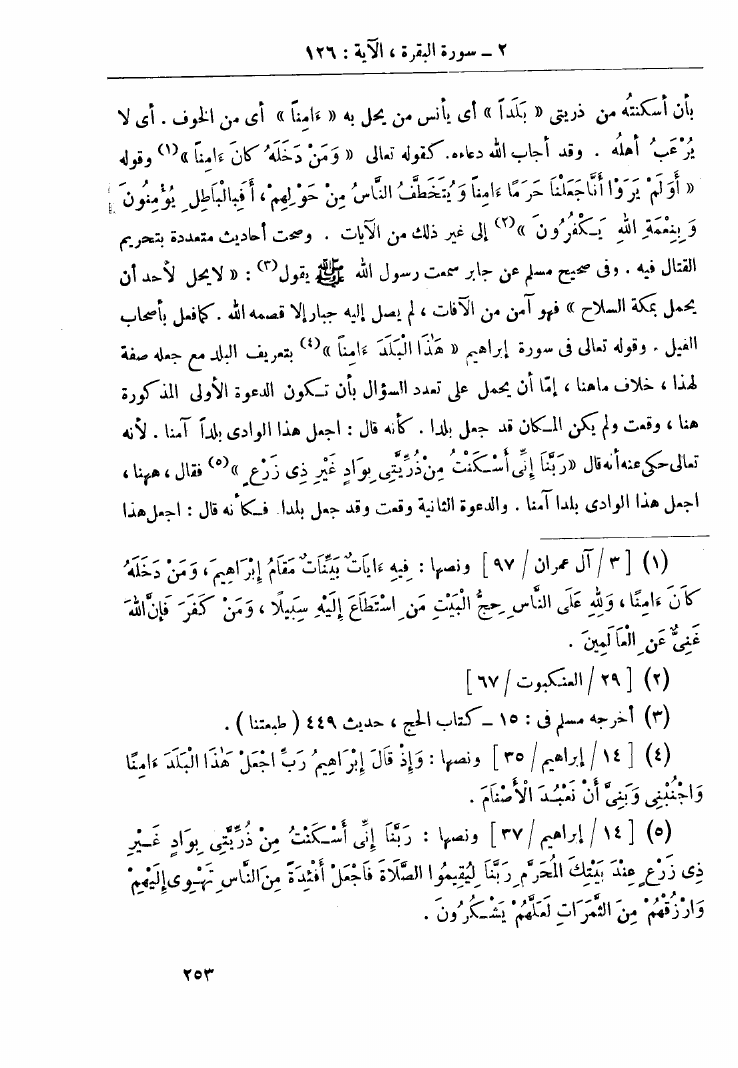 ٢ ــ سورة البقرة ، الآية : ١٢٦
بأن أسكنتُه من ذريتى « بَلَداً » أى يأنس من يحل به « ءَامِناً » أى من الخوف . أى لا
يُرْعَبُ أهلُه . وقد أجاب الله دعاءه. كقوله تعالى « وَمَنْ دَخَلَهُ كَانَ ءَامِناً »(١) وقوله
« أَوَلَمْ يَرَوْا أَنَّا جَعَلْنَا حَرَمًا ءَامِناً وَيُتَخَطَّفُ النَّاسُ مِنْ حَوْلِهِمْ، أَفَبِالْبَاطِلِ يُؤْمِنُونَ
وَبِنِعْمَةِ اللهِ يَكْفُرُونَ »(٢) إلى غير ذلك من الآيات . وصحت أحاديث متعددة بتحريم
القتال فيه . وفى صحيح مسلم عن جابر سمعت رسول الله ﷺ يقول(٣) : « لايحل لأحد أن
يحمل بمكة السلاح » فهو آمن من الآفات ، لم يصل إليه جبار إلا قصمه الله . كما فعل بأصحاب
الفيل . وقوله تعالى فى سورة إبراهيم « هَٰذَا الْبَلَدَ ءَامِناً »(٤) بتعريف البلد مع جعله صفة
لهذا ، خلاف ماهنا ، إمّا أن يحمل على تعدد السؤال بأن تكون الدعوة الأولى المذكورة
هنا ، وقعت ولم يكن المكان قد جعل بلدا . كأنه قال : اجعل هذا الوادى بلداً آمنا . لأنه
تعالى حكى عنه أنه قال « رَبَّنَا إِنِّى أَسْكَنْتُ مِنْ ذُرِّيَّتِى بِوَادٍ غَيْرِ ذِى زَرْعٍ »(٥) فقال ، ههنا ،
اجعل هذا الوادى بلدا آمنا . والدعوة الثانية وقعت وقد جعل بلدا. فكأنه قال : اجعل هذا
(١) [ ٣ / آل عمران / ٩٧ ] ونصها : فِيهِ ءَايَاتٌ بَيِّنَاتٌ مَقَامُ إِبْرَاهِيمَ، وَمَنْ دَخَلَهُ
كَانَ ءَامِنًا ، وَلِلهِ عَلَى النَّاسِ حِجُّ الْبَيْتِ مَنِ اسْتَطَاعَ إِلَيْهِ سَبِيلًا ، وَمَنْ كَفَرَ فَإِنَّ اللهَ
غَنِىٌّ عَنِ الْعَالَمِينَ .
(٢) [ ٢٩ / العنكبوت / ٦٧ ]
(٣) أخرجه مسلم فى : ١٥ ــ كتاب الحج ، حديث ٤٤٩ ( طبعتنا ) .
(٤) [ ١٤ / إبراهيم / ٣٥ ] ونصها : وَإِذْ قَالَ إِبْرَاهِيمُ رَبِّ اجْعَلْ هَٰذَا الْبَلَدَ ءَامِنًا
وَاجْنُبْنِى وَبَنِىَّ أَنْ نَعْبُدَ الْأَصْنَامَ .
(٥) [ ١٤ / إبراهيم / ٣٧ ] ونصها : رَبَّنَا إِنِّى أَسْكَنْتُ مِنْ ذُرِّيَّتِى بِوَادٍ غَيْرِ
ذِى زَرْعٍ عِنْدَ بَيْتِكَ الْمُحَرَّمِ رَبَّنَا لِيُقِيمُوا الصَّلَاةَ فَاجْعَلْ أَفْئِدَةً مِنَ النَّاسِ تَهْوِى إِلَيْهِمْ
وَارْزُقْهُمْ مِنَ الثَّمَرَاتِ لَعَلَّهُمْ يَشْكُرُونَ .
٢٥٣